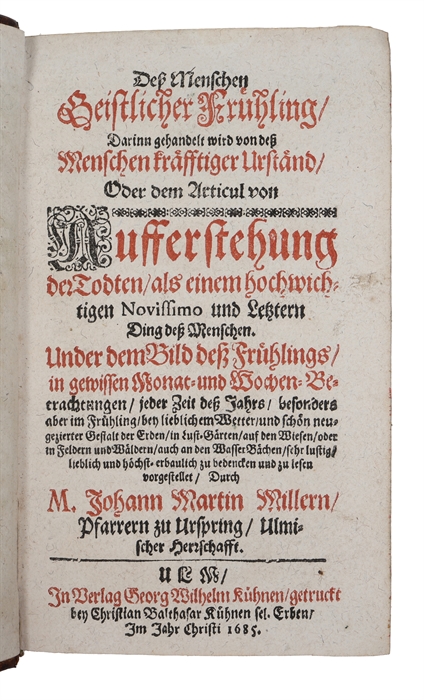 Deß Menschen
Geistlicher Frühling/
Darinn gehandelt wird von deß
Menschen kräfftiger Urständ/
Oder dem Articul von
Aufferstehung
der Todten/ als einem hochwich-
tigen Novissimo und Letztern
Ding deß Menschen.
Under dem Bild deß Frühlings/
in gewissen Monat- und Wochen- Be-
trachtungen/ jeder Zeit deß Jahrs/ besonders
aber im Frühling/ bey lieblichem Wetter/ und schön neu-
gezierter Gestalt der Erden/ in Lust-Gärten/ auf den Wiesen/ oder
in Feldern und Wäldern/ auch an den Wasser Bächen/ sehr lustig/
lieblich und höchst-erbaulich zu bedencken und zu lesen
vorgestellet/ Durch
M. Johann Martin Millern/
Pfarrern zu Urspring/ Ulmi-
scher Herrschafft.
ULM/
In Verlag Georg Wilhelm Kühnen/ getruckt
bey Christian Balthasar Kühnen sel. Erben/
Im Jahr Christi 1685.